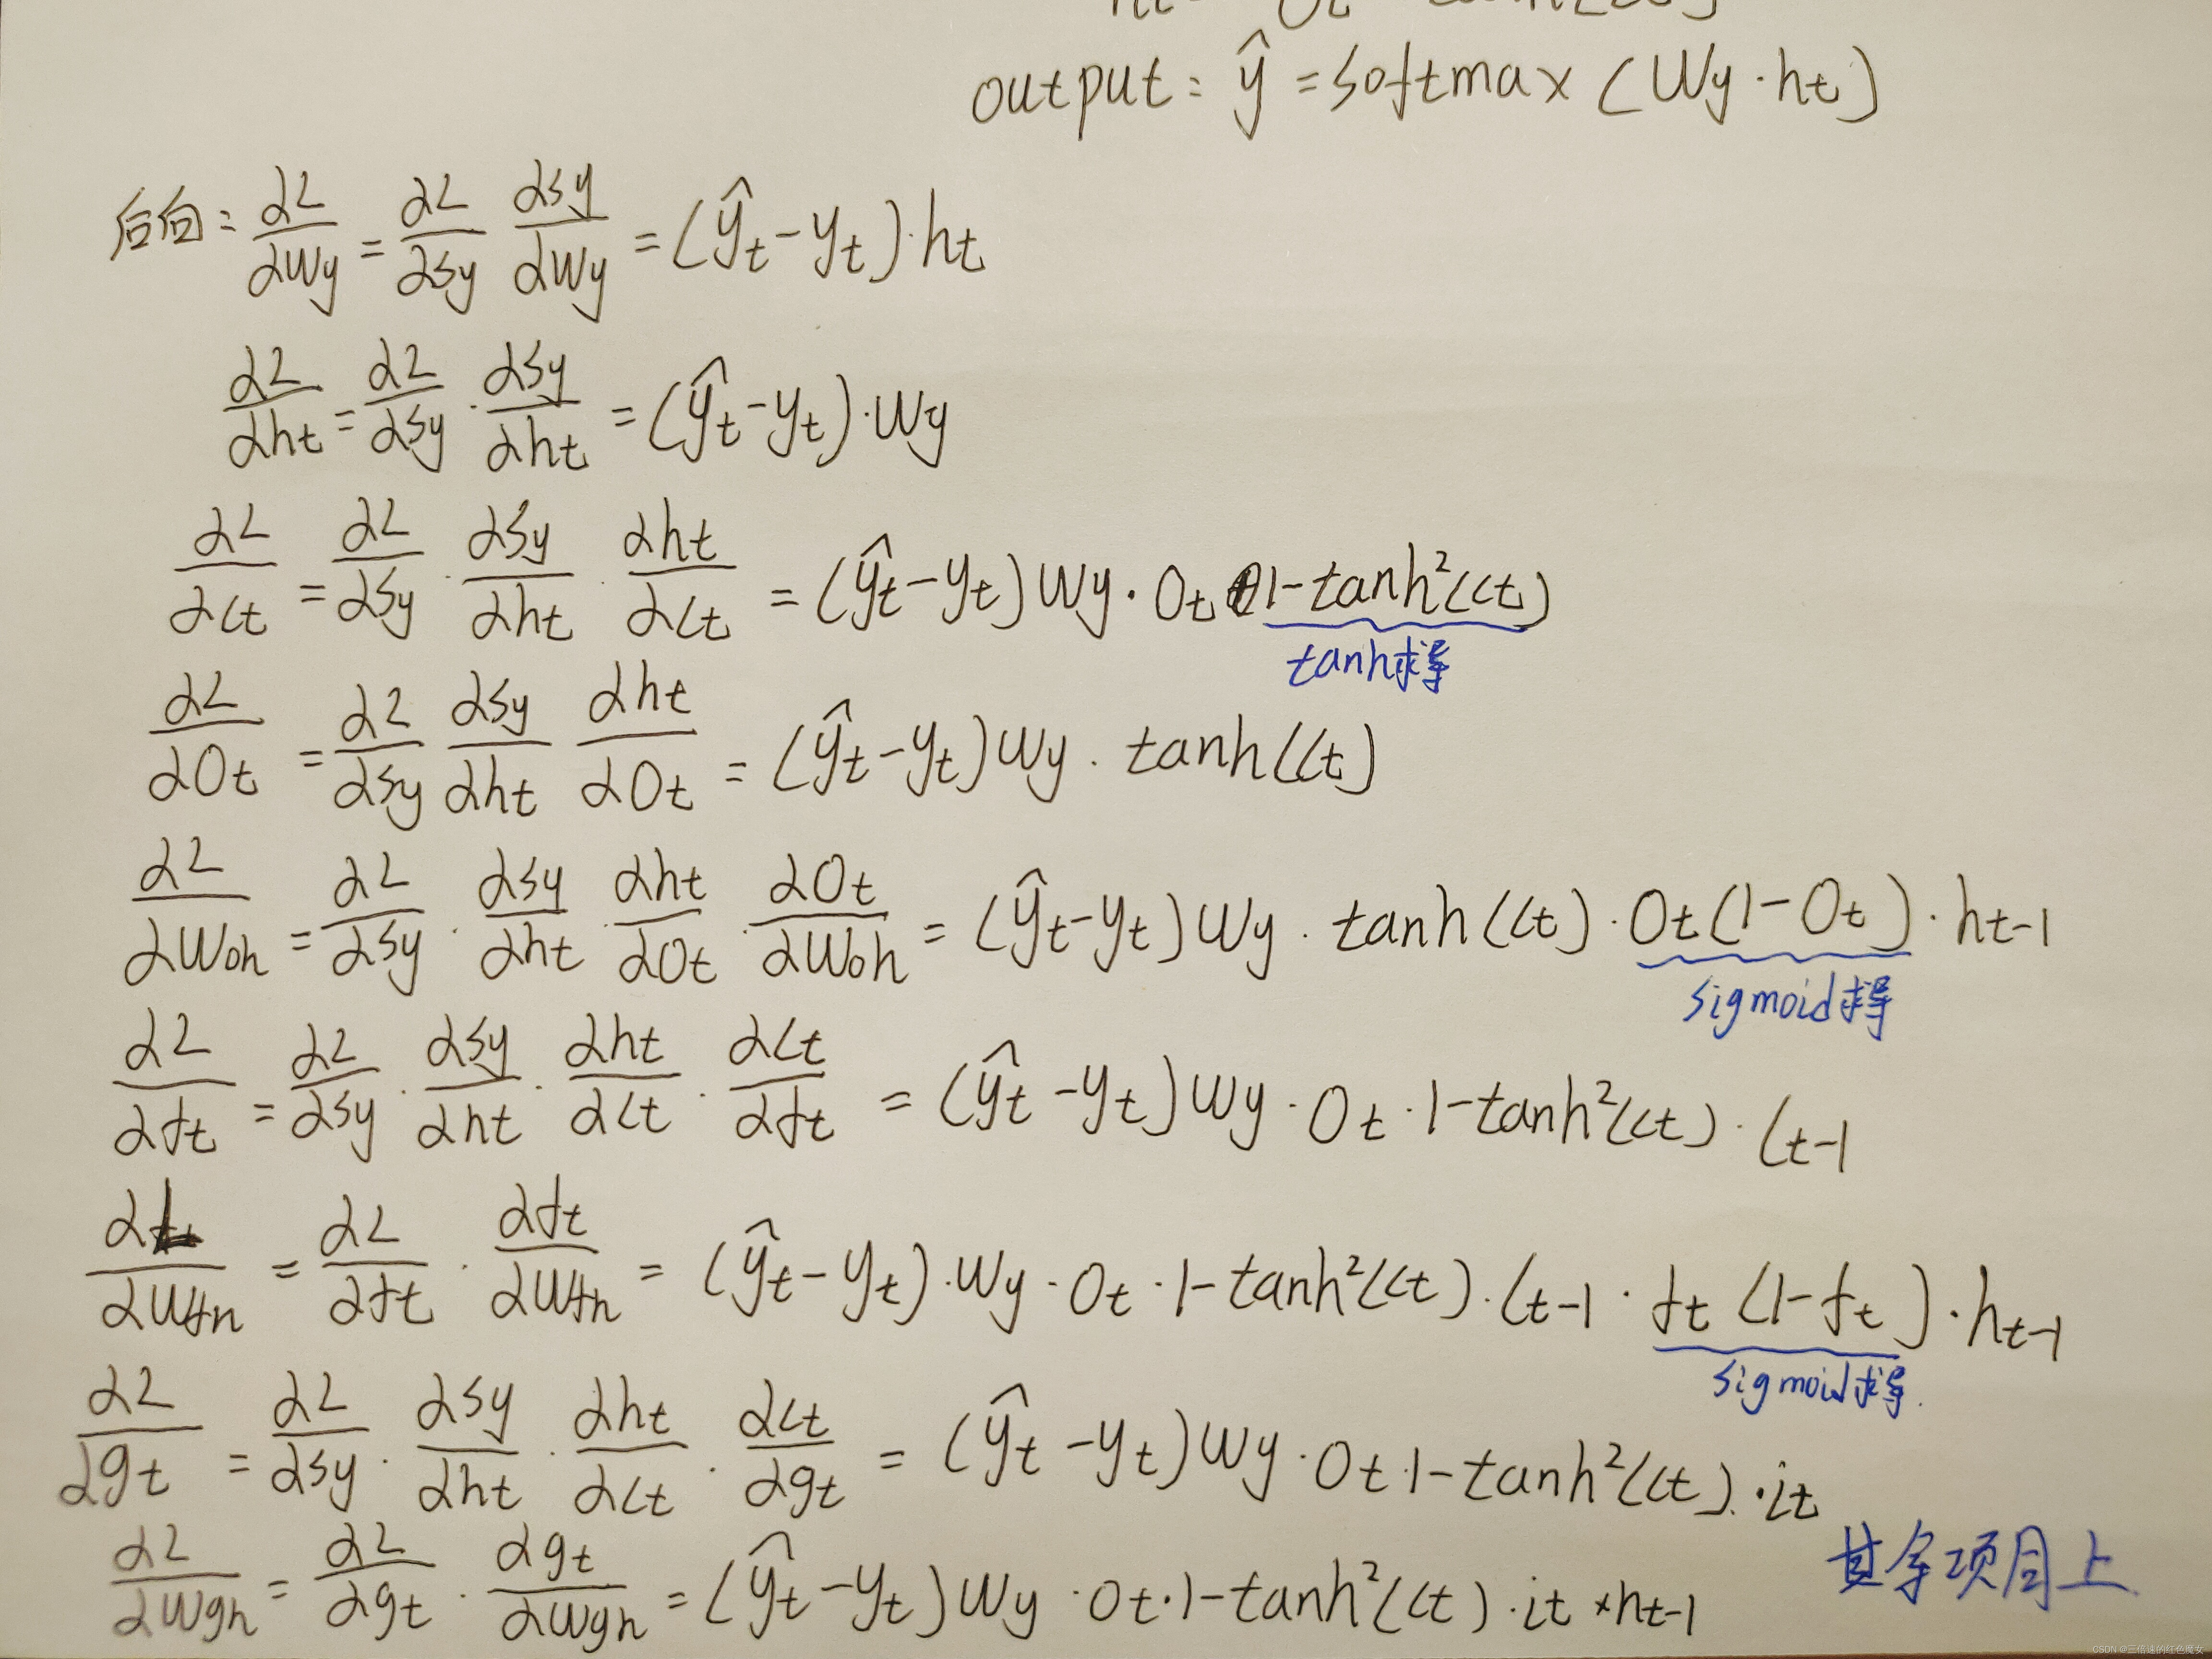 output: ŷ = softmax (Wy · ht)
后向: ∂L/∂Wy = ∂L/∂Sy ∂Sy/∂Wy = (ŷt - yt) · ht
∂L/∂ht = ∂L/∂Sy · ∂Sy/∂ht = (ŷt - yt) · Wy
∂L/∂Ct = ∂L/∂Sy · ∂Sy/∂ht · ∂ht/∂Ct = (ŷt - yt) Wy · Ot · 1 - tanh²(Ct)
tanh求导
∂L/∂Ot = ∂L/∂Sy ∂Sy/∂ht ∂ht/∂Ot = (ŷt - yt) Wy · tanh(Ct)
∂L/∂Woh = ∂L/∂Sy · ∂Sy/∂ht · ∂ht/∂Ot · ∂Ot/∂Woh = (ŷt - yt) Wy · tanh(Ct) · Ot(1 - Ot) · ht-1
sigmoid求导
∂L/∂ft = ∂L/∂Sy · ∂Sy/∂ht · ∂ht/∂Ct · ∂Ct/∂ft = (ŷt - yt) Wy · Ot · 1 - tanh²(Ct) · Ct-1
∂L/∂Wfh = ∂L/∂ft · ∂ft/∂Wfh = (ŷt - yt) · Wy · Ot · 1 - tanh²(Ct) · Ct-1 · ft (1 - ft) · ht-1
sigmoid求导
∂L/∂gt = ∂L/∂Sy · ∂Sy/∂ht · ∂ht/∂Ct · ∂Ct/∂gt = (ŷt - yt) Wy · Ot · 1 - tanh²(Ct) · it
∂L/∂Wgh = ∂L/∂gt · ∂gt/∂Wgh = (ŷt - yt) Wy · Ot · 1 - tanh²(Ct) · it * ht-1
其余项同上
CSDN @三倍速的红色魔女